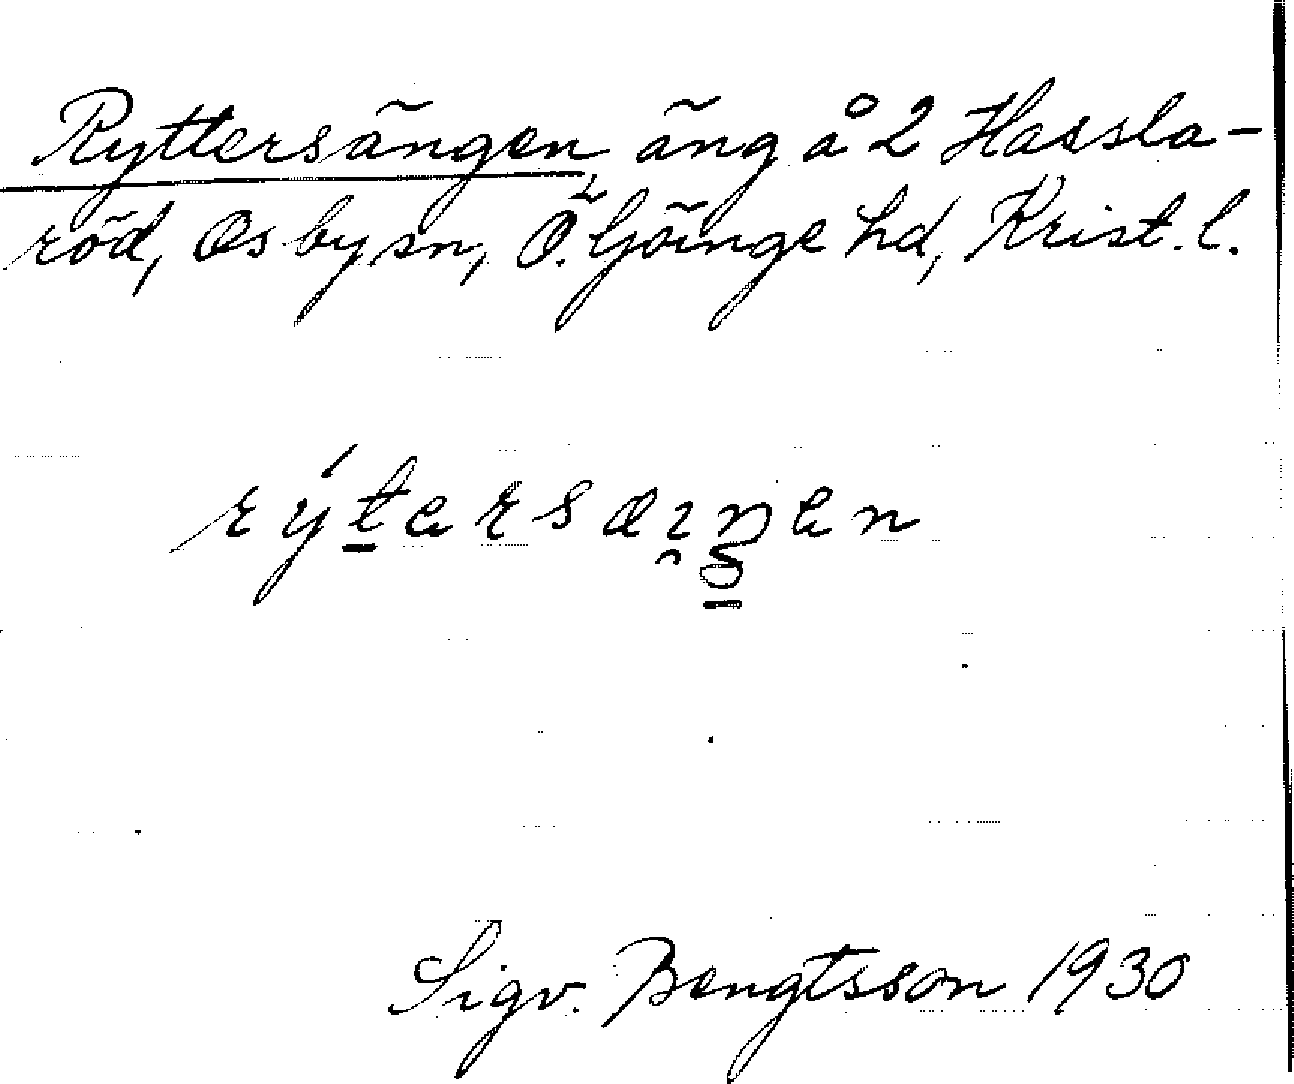 Ryttersängen, äng å 2 Hassla-
röd, Osby sn, Ö. Göinge hd, Krist. l.
rýtersæıŋen
Sigv. Bengtsson 1930